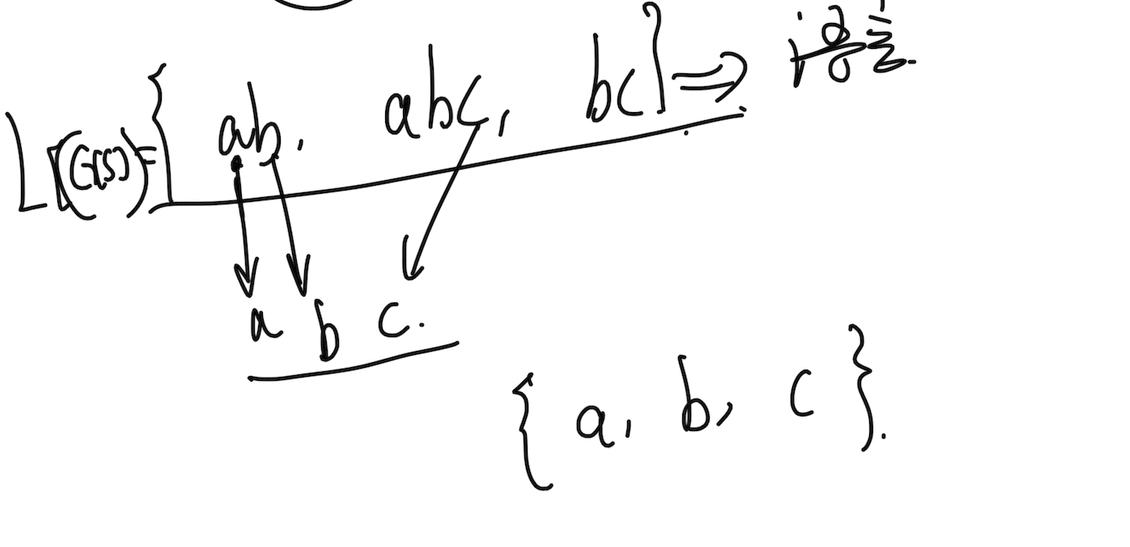 L(G(S))={ ab, abc, bc} ⇒
a b c.
{ a, b, c }.